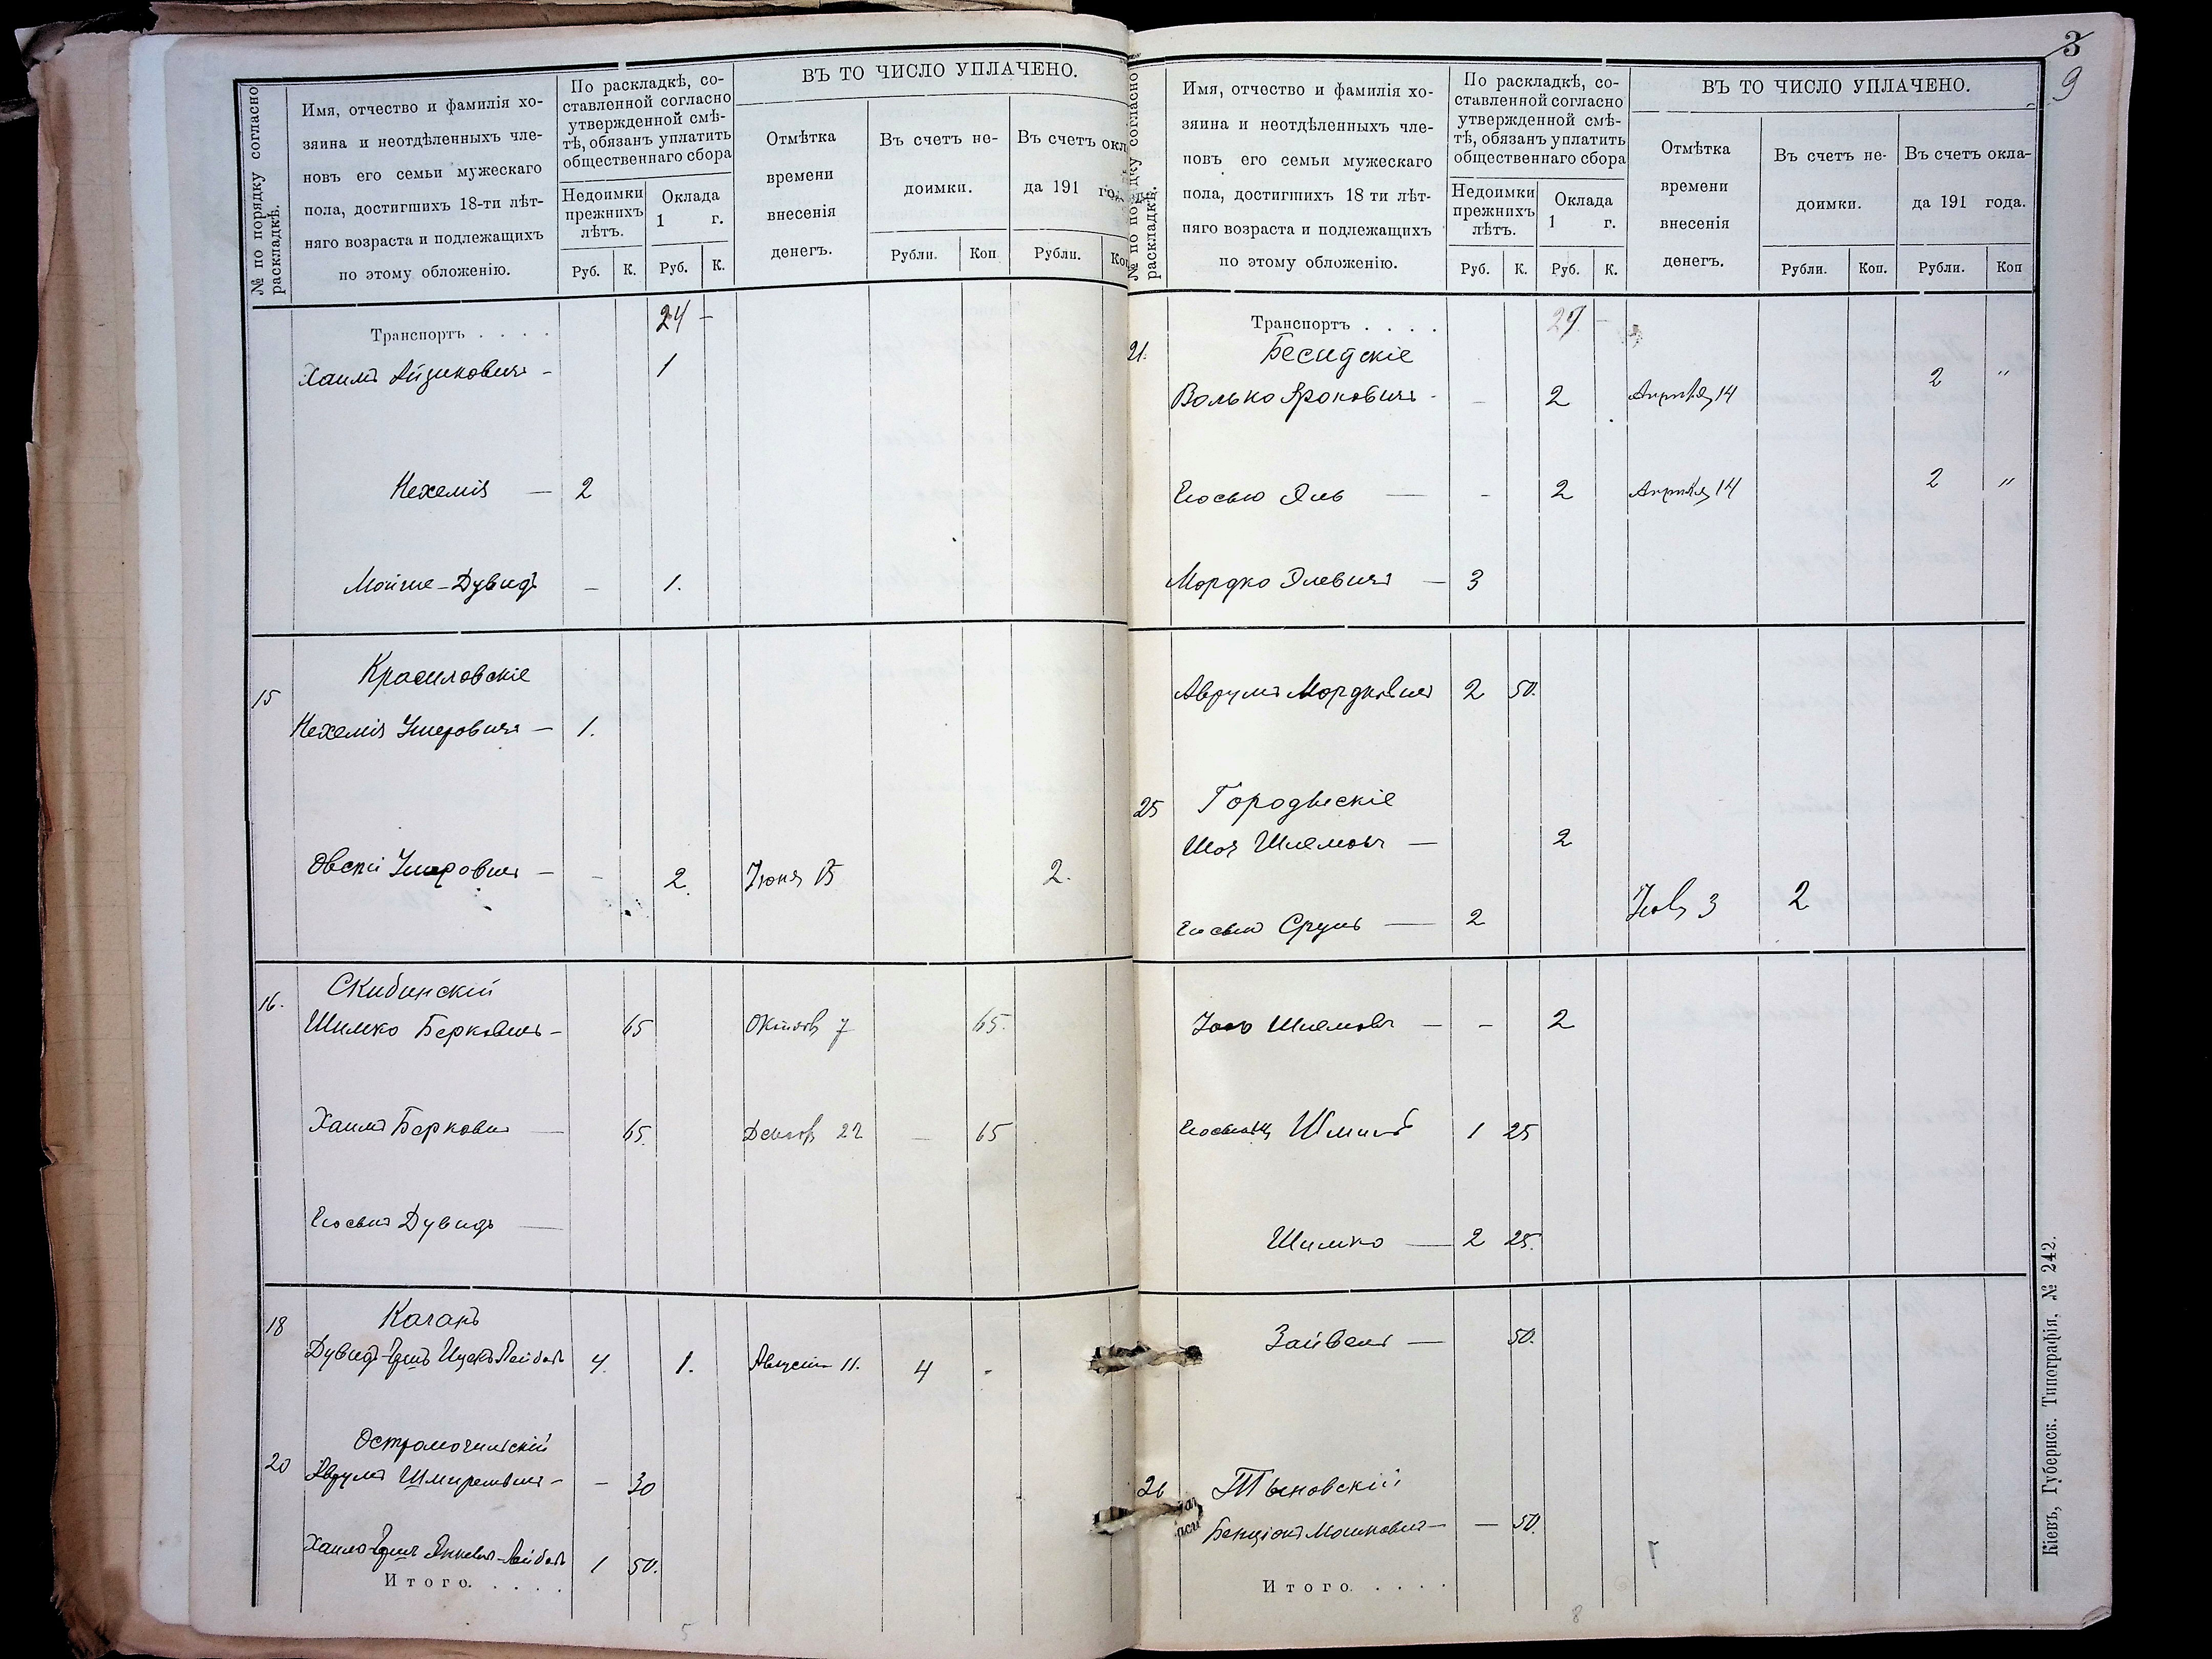 № по порядку согласно раскладкѣ.
Имя, отчество и фамилія хо-
зяина и неотдѣленныхъ чле-
новъ его семьи мужескаго
пола, достигшихъ 18-ти лѣт-
няго возраста и подлежащихъ
по этому обложенію.
По раскладкѣ, со-
ставленной согласно
утвержденной смѣ-
тѣ, обязанъ уплатить
общественнаго сбора
Недоимки
прежнихъ
лѣтъ.
Оклада
1 г.
Руб. К. Руб. К.
ВЪ ТО ЧИСЛО УПЛАЧЕНО.
Отмѣтка
времени
внесенія
денегъ.
Въ счетъ не-
доимки.
Рубли. Коп
Въ счетъ окл
да 191 го
Рубли. Коп
Транспортъ . . . . 24 –
Хаимъ Айзиковичъ – 1
Нехемія — 2
Мойше-Дувидъ – 1.
15 Красиловскіе
Нехемія Умеровичъ — 1.
Овсей Умеровичъ — – 2. Іюня 15 2.
16. Скибинскій
Шимко Берковичъ – 65 Октяб 7 65.
Хаимъ Беркович — 65. Декаб 22 — 65
Иосьмъ Дувидъ —
18 Каганъ
Дувидъ-Герш Ицекъ Лейбов 4. 1. Августа 11. 4 -
Остромогильскій
20 Аврумъ Шмиревич – – 30
Хаимо-Герш Янкель-Лейбов 1 50.
Итого. . . . .
5
3
9
№ по порядку согласно раскладкѣ.
Имя, отчество и фамилія хо-
зяина и неотдѣленныхъ чле-
новъ его семьи мужескаго
пола, достигшихъ 18 ти лѣт-
няго возраста и подлежащихъ
по этому обложенію.
По раскладкѣ, со-
ставленной согласно
утвержденной смѣ-
тѣ, обязанъ уплатить
общественнаго сбора
Недоимки
прежнихъ
лѣтъ.
Оклада
1 г.
Руб. К. Руб. К.
ВЪ ТО ЧИСЛО УПЛАЧЕНО.
Отмѣтка
времени
внесенія
денегъ.
Въ счетъ не-
доимки.
Рубли. Коп.
Въ счетъ окла-
да 191 года.
Рубли. Коп
Транспортъ . . . . 27 –
21. Бесидскіе
Волько Ароновичъ - – 2 Апрѣля 14 2 "
Иосью Эль — - 2 Апрѣля 14 2 "
Мордко Элевичъ — 3
Аврумъ Мордкович 2 50.
25 Городыскіе
Шоя Шлемов — 2
Иосью Сруль — 2 Нояб 3 2
Іось Шлемов — – 2
Шмиль 1 25
Шимко — 2 25.
Зайвель — 50.
26 Тыновскій
Бенціонъ Мошкович — — 50.
Итого. . . . .
8
Кіевъ, Губернск. Типографія, № 242.